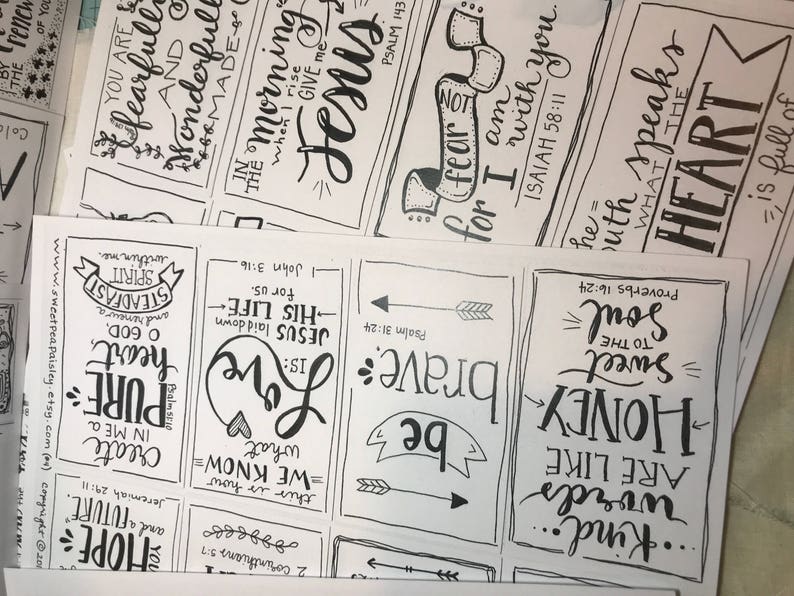 BY
THE
OF YOU
YOU ARE
fearfully
AND
Wonderfully
MADE
IN
THE morning
when I rise
GIVE me
Jesus
PSALM 143
fear NOT
for I am
with you.
ISAIAH 58:11
speaks
WHAT THE
HEART
is full of
Kind...
words
ARE LIKE
HONEY
sweet
TO THE
soul
Proverbs 16:24
be
brave.
Psalm 31:24
this is how
WE KNOW
what
Love
IS:
JESUS laid down
HIS LIFE
for us.
1 John 3:16
Create
IN ME a
PURE
heart,
O GOD,
and renew a
STEADFAST
SPIRIT
within me.
Psalm 51:10
www.sweetpeapaisley.etsy.com
copyright © 20
YOU
HOPE
and a FUTURE.
Jeremiah 29:11
2 Corinthians 5:7